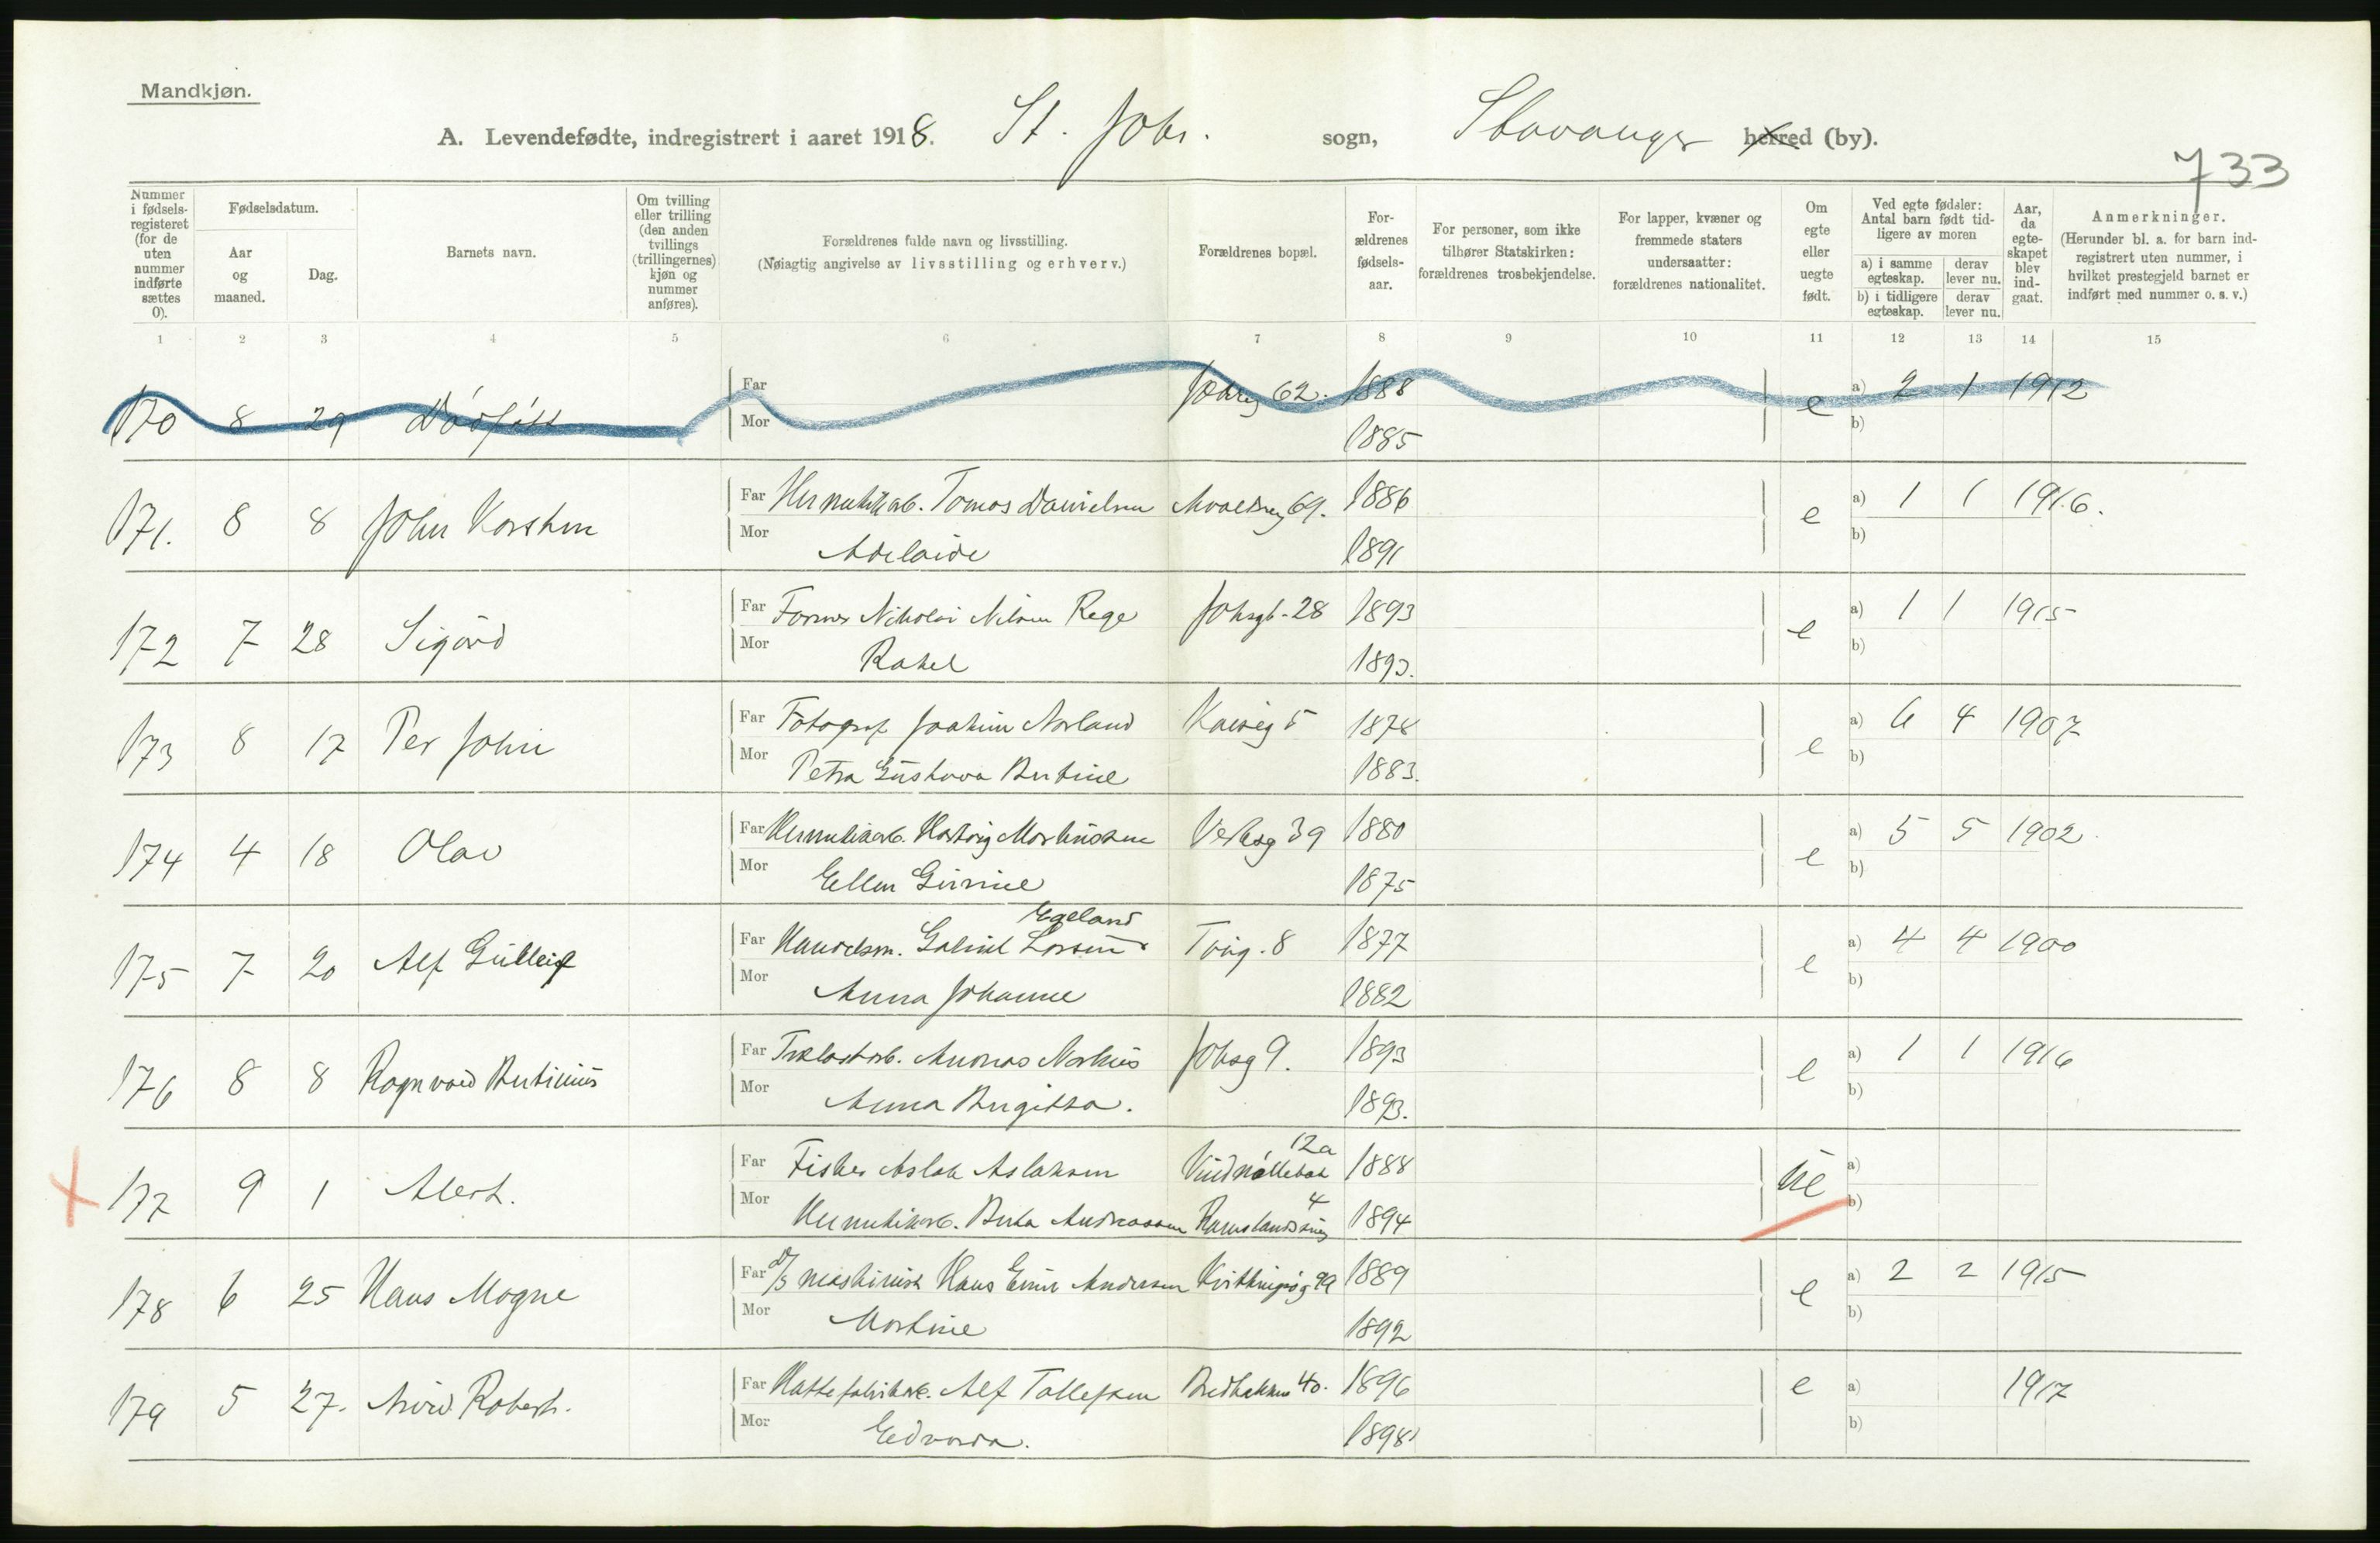 Mandkjøn.
A. Levendefødte, indregistrert i aaret 1918. St. Johs. sogn, Stavanger herred (by).
733
Nummer i fødselsregisteret (for de uten nummer indførte sættes 0).
Fødselsdatum.
Aar og maaned.
Dag.
Barnets navn.
Om tvilling eller trilling (den anden tvillings (trillingernes) kjøn og nummer anføres).
Forældrenes fulde navn og livsstilling.
(Nøiagtig angivelse av livsstilling og erhverv.)
Forældrenes bopæl.
Forældrenes fødselsaar.
For personer, som ikke tilhører Statskirken: forældrenes trosbekjendelse.
For lapper, kvæner og fremmede staters undersaatter: forældrenes nationalitet.
Om egte eller uegte født.
Ved egte fødsler: Antal barn født tidligere av moren
a) i samme egteskap.
derav lever nu.
b) i tidligere egteskap.
derav lever nu.
Aar, da egteskapet blev indgaat.
Anmerkninger.
(Herunder bl. a. for barn indregistrert uten nummer, i hvilket prestegjeld barnet er indført med nummer o. s. v.)
1 2 3 4 5 6 7 8 9 10 11 12 13 14 15
170 8 29 Dødfødt Far 62. 1888 e a) 2 1 1912
Mor 1885 b)
171. 8 8 John Karsten Far Hermetikarb. Tomas Danielsen 69. 1886 e a) 1 1 1916.
Mor Adelaide 1891 b)
172 7 28 Sigurd Far Former Nikolai Nilsen Rege Johsgt. 28 1893 e a) 1 1 1915
Mor Rakel 1893. b)
173 8 17 Per John Far Fotograf Joakim Norland 5 1878 e a) 6 4 1907
Mor Petra Gustava Bertine 1883. b)
174 4 18 Olav Far Hermetikarb. Hartvig Martinsen 39 1880 e a) 5 5 1902
Mor Ellen 1875 b)
Egeland
175 7 20 Alf Gulleif Far Handelsm. Gabriel Larsen Torvg. 8 1877 e a) 4 4 1900
Mor Anna Johanne 1882 b)
176 8 8 Ragnvald Bertinius Far Andreas Johsg 9. 1893 e a) 1 1 1916
Mor Anna Birgitta. 1893. b)
12a
177 9 1 Far Fisker Aslak Aslaksen Vindmøllebak 1888 ue a)
4
Mor Hermetikarb. Berta Andreassen 1894 b)
178 6 25 Hans Magne Far D/S maskinist Hans Einar Andersen 1889 e a) 2 2 1915
Mor Martine 1892 b)
179 5 27. Arvid Robert. Far Alf Tollefsen Bredbakken 40. 1896 e a) 1917
Mor Edvarda. 1898 b)